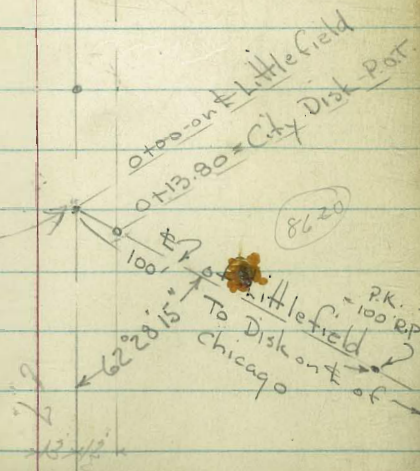 0+00 on ℄ Littlefield
0+13.80 = City Disk Pat.
86.20
℄
100'
of Littlefield
P.K.
100' R.P.
To Disk on ℄ of
Chicago
62°28'15"
13' 12'